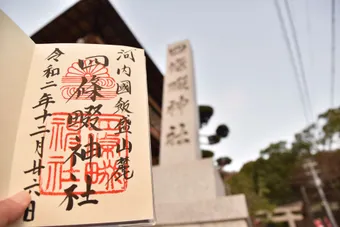 河内國飯盛山麓
四條畷神社
令和二年十二月廿六日
四條畷神社